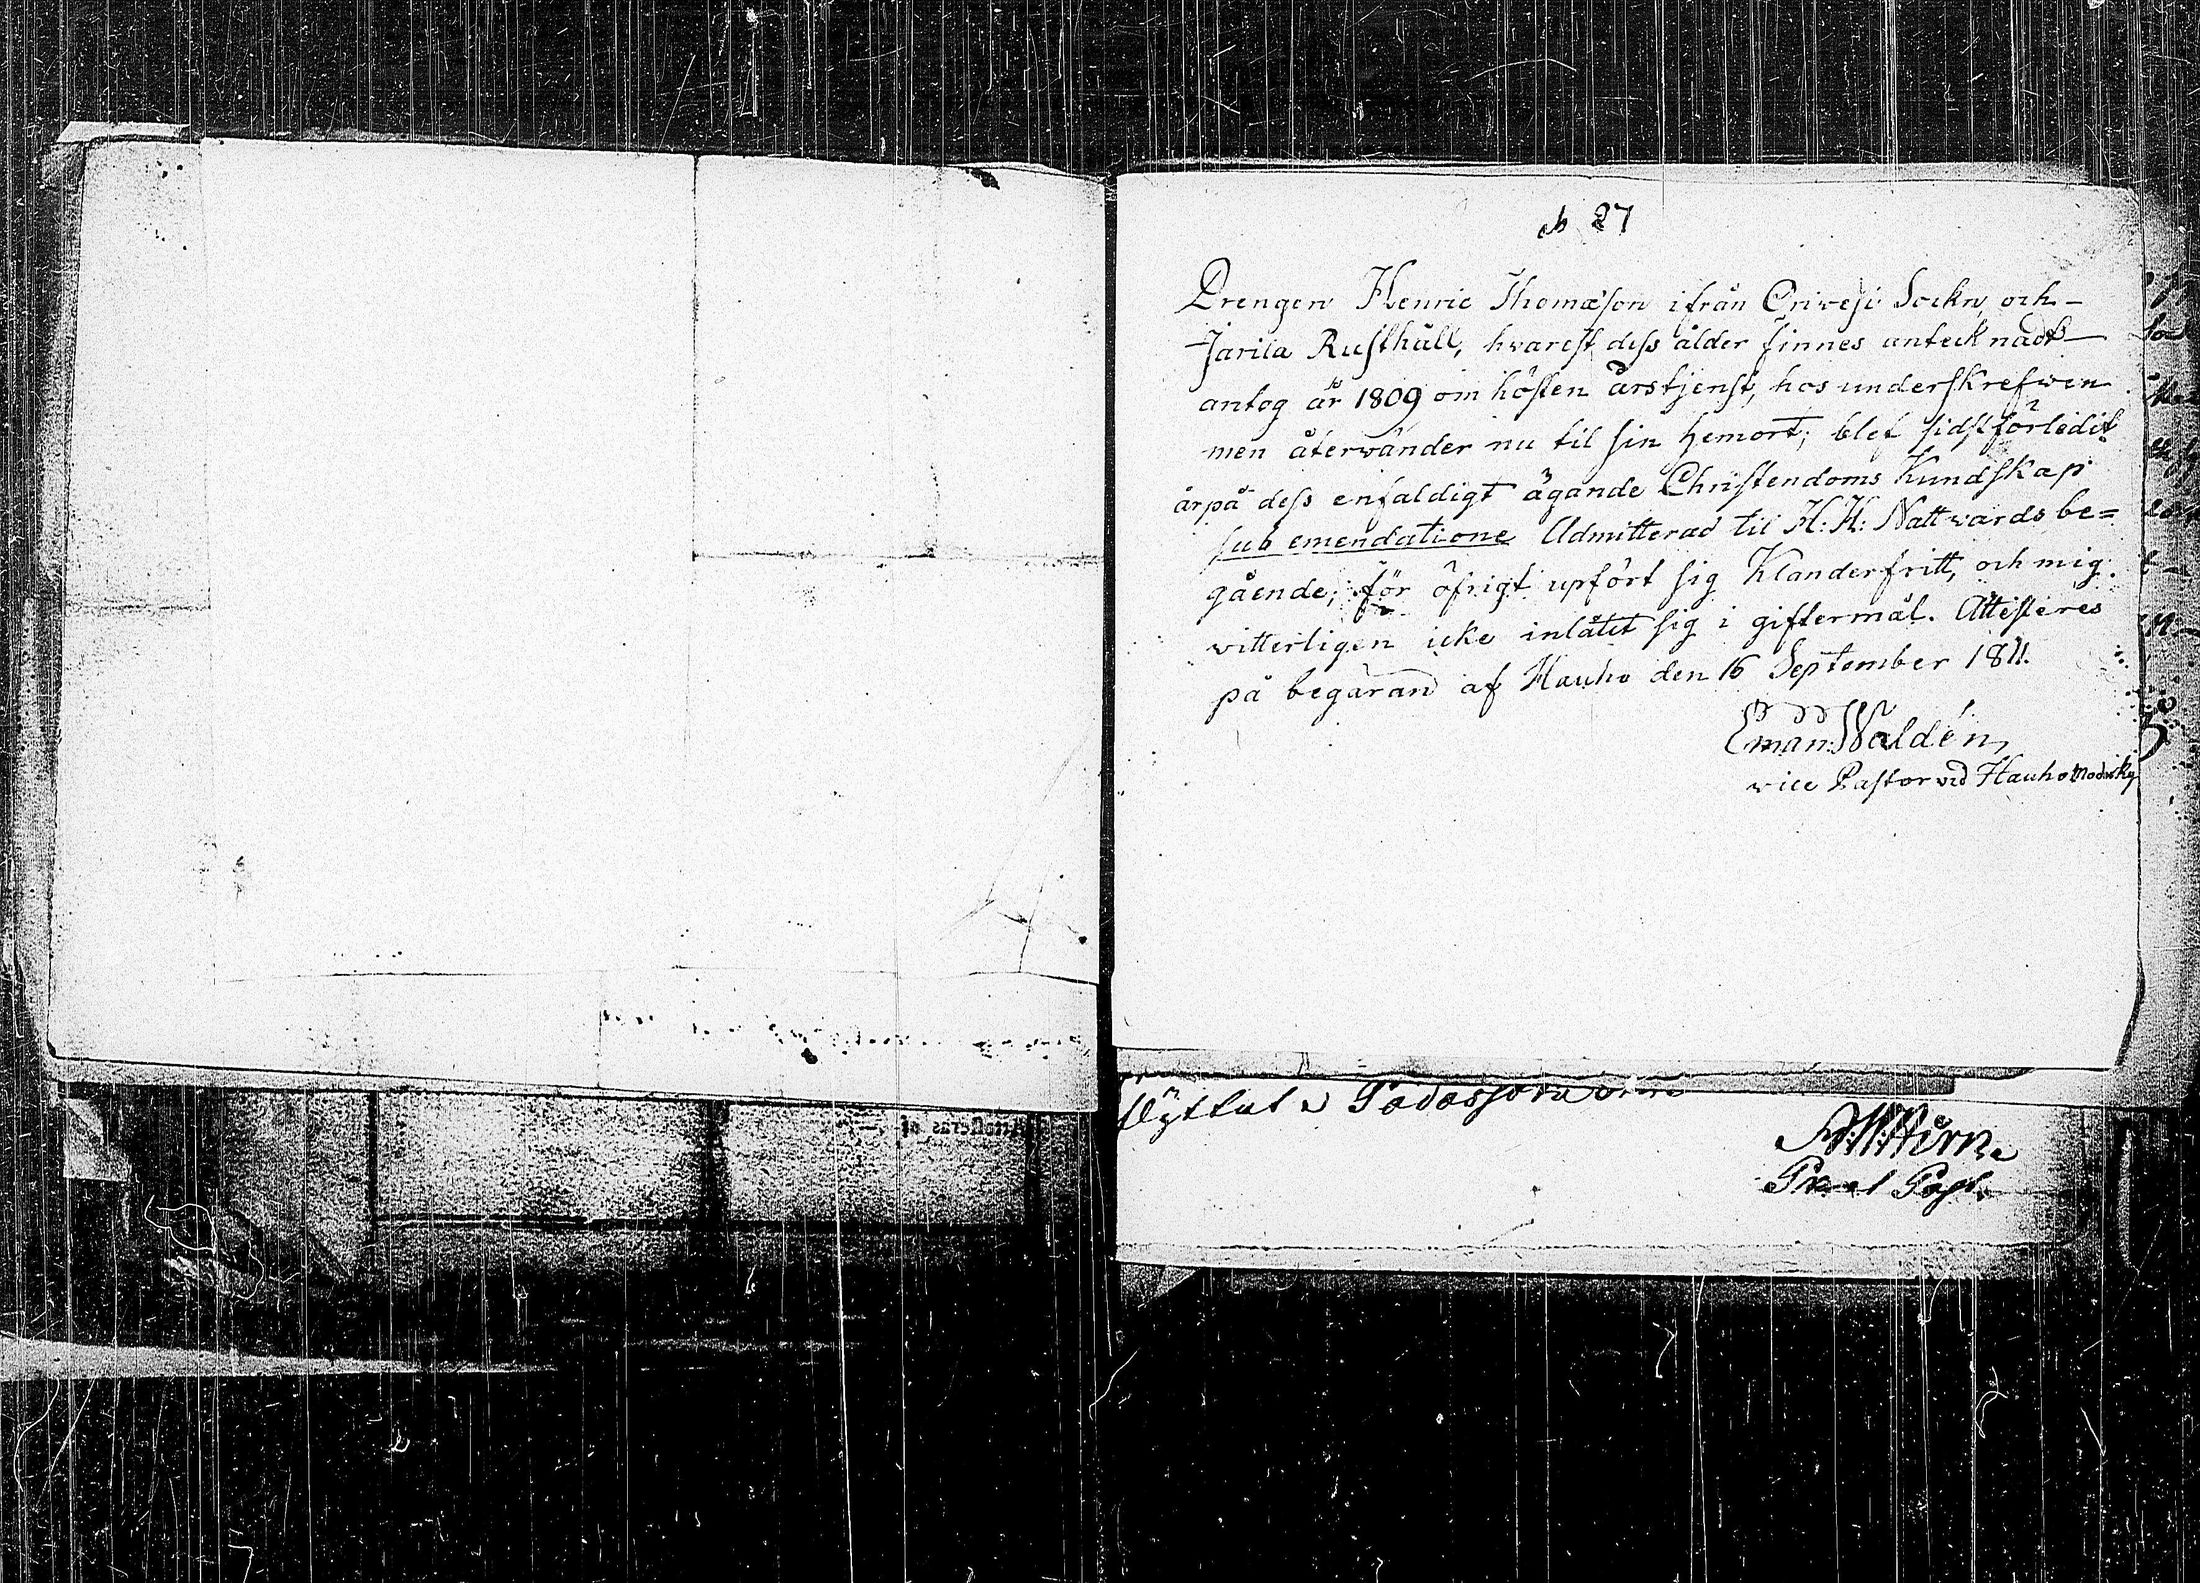 № 27
Drengen Henric Thomæson ifrån Orivesi Sockn, och
Jarila Rusthåll, hvarest dess ålder finnes antecknadt
antog år 1809 om hösten årstjenst, hos underskrefwen
men återwänder nu til sin hemort; blef sidstförledit
år på dess enfaldigt ägande Christendoms Kundskap
sub emendatione Admitterad til H: H: Nattvards be=
gående; för öfrigt upfört sig Klanderfritt, och mig
vitterligen icke inlåtit sig i giftermål. Attesteres
på begäran af Hauho den 16 September 1811.
Eman: Waldén,
vice Pastor vid Hauho Modrky
flyttat
Hirn
Past.
Attesteras af